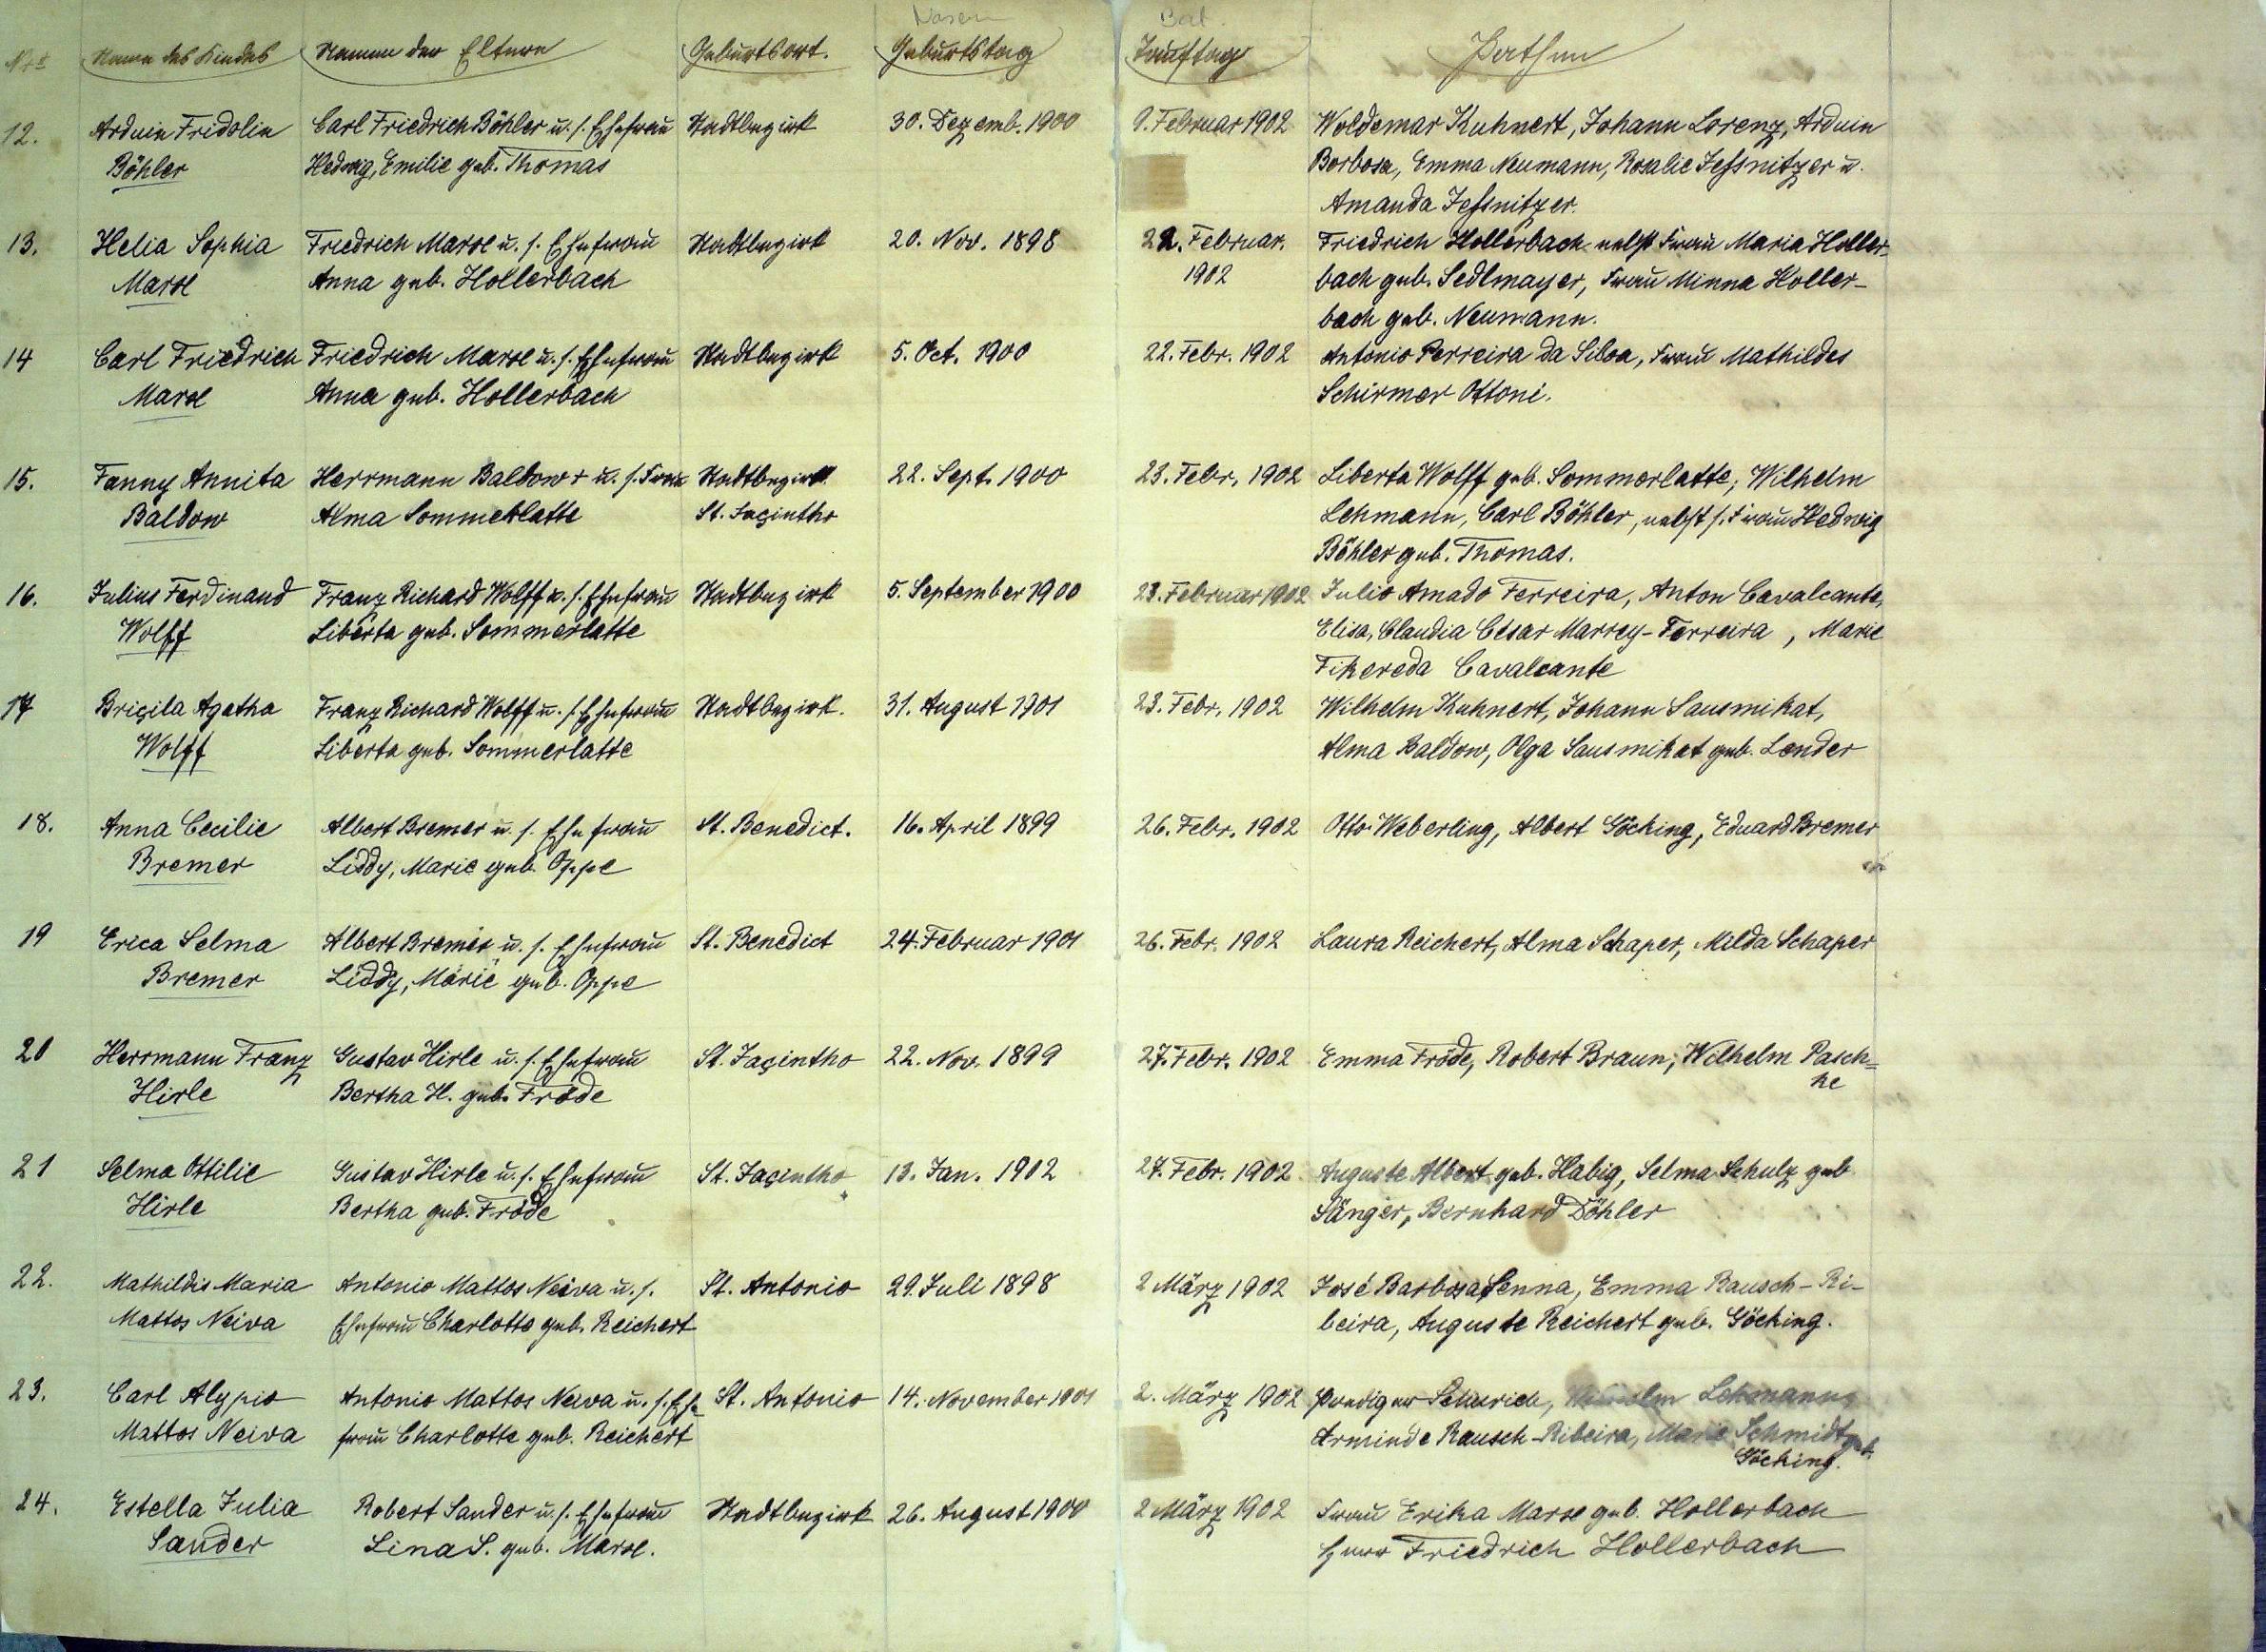 Nasc. Bat.
Nro Name des Kindes Namen der Eltern Geburtsort. Geburtstag Tauftag Pathen
12. Arduin Fridolin Carl Friedrich Böhler u. s. Ehefrau Stadtbezirk 30. Dezemb. 1900 9. Februar 1902 Woldemar Kuhnert, Johann Lorenz, Arduin
Böhler Hedwig, Emilie geb. Thomas Borbosa, Emma Neumann, Rosalie Jeßnitzer u.
Amanda Jeßnitzer.
13. Helia Sophia Friedrich Marxe u. s. Ehefrau Stadtbezirk 20. Nov. 1898 22. Februar. Friedrich Hollerbach nebst Frau Maria Holler-
Marxe Anna geb. Hollerbach 1902 bach geb. Sedlmayer, Frau Minna Holler-
bach geb. Neumann.
14 Carl Friedrich Friedrich Marxe u. s. Ehefrau Stadtbezirk 5. Oct. 1900 22. Febr. 1902 Antonio Perreira da Silva, Frau Mathildes
Marxe Anna geb. Hollerbach Schirmer Ottoni.
15. Fanny Annita Herrmann Baldow + u. s. Frau Stadtbezirk 22. Sept. 1900 23. Febr. 1902 Liberta Wolff geb. Sommerlatte, Wilhelm
Baldow Alma Sommerlatte St. Jaçintho Lehmann, Carl Böhler, nebst s. Frau Hedwig
Böhler geb. Thomas.
16. Julius Ferdinand Franz Richard Wolff u. s. Ehefrau Stadtbezirk 5. September 1900 23. Februar 1902 Julio Amado Ferreira, Anton Cavalcante,
Wolff Liberta geb. Sommerlatte Elisa, Claudia César Marrey-Ferreira, Marie
Fikereda Cavalcante
17 Briçila Agatha Franz Richard Wolff u. s. Ehefrau Stadtbezirk. 31. August 1901 23. Febr. 1902 Wilhelm Kuhnert, Johann Sausmikat,
Wolff Liberta geb. Sommerlatte Alma Baldow, Olga Sausmikat geb. Lender
18. Anna Cecilie Albert Bremer u. s. Ehefrau St. Benedict. 16. April 1899 26. Febr. 1902 Otto Weberling, Albert Göcking, Eduard Bremer
Bremer Liddy, Marie geb. Oppe
19 Erica Selma Albert Bremer u. s. Ehefrau St. Benedict 24. Februar 1901 26. Febr. 1902 Laura Reichert, Alma Schaper, Milda Schaper
Bremer Liddy, Marie geb. Oppe
20 Herrmann Franz Gustav Hirle u. s. Ehefrau St. Jaçintho 22. Nov. 1899 27. Febr. 1902 Emma Fröde, Robert Braun, Wilhelm Pasch=
Hirle Bertha H. geb. Fröde ke
21 Selma Ottilie Gustav Hirle u. s. Ehefrau St. Jaçintho 13. Jan. 1902 27. Febr. 1902 Auguste Albert geb. Habig, Selma Schulz geb.
Hirle Bertha geb. Fröde Sänger, Bernhard Döhler
22. Mathildis Maria Antonio Mattos Neiva u. s. St. Antonio 29. Juli 1898 2 März 1902 José Barbosa Senna, Emma Rausch-Ri-
Mattos Neiva Ehefrau Charlotte geb. Reichert beira, Auguste Reichert geb. Göcking.
23. Carl Alypio Antonio Mattos Neiva u. s. Ehe St. Antonio 14. November 1901 2. März 1902 Prediger Schurich, Wilhelm Lehmann,
Mattos Neiva frau Charlotte geb. Reichert Arminde Rausch-Ribeira, Marie Schmidt geb.
Göcking.
24. Estella Julia Robert Sander u. s. Ehefrau Stadtbezirk 26. August 1900 2 März 1902 Frau Erika Marxe geb. Hollerbach
Sander Lina S. geb. Marxe. Herr Friedrich Hollerbach